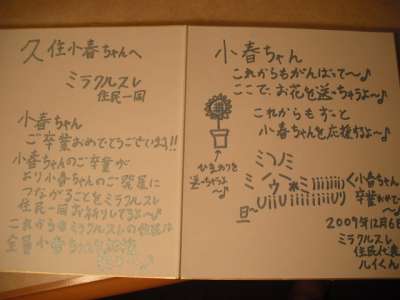 久住小春ちゃんへ
ミラクルスレ
住民一同
小春ちゃん
ご卒業おめでとうございます!!
小春ちゃんのご卒業が
より小春ちゃんのご発展に
つながることをミラクルスレ
住民一同お祈りしてるよ〜♪
これからもミラクルスレの住民は
全員小春ちゃんを応援
小春ちゃん
これからもがんばって〜♪
ここで、お花を送っちゃうよ〜♪
これからもずっと
小春ちゃんを応援するよ〜♪
ひまわりを
送っちゃうよ
〜♪
小春ちゃん
卒業おめで
〜♪
2009年12月6日
ミラクルスレ
住民代表
ルイくん